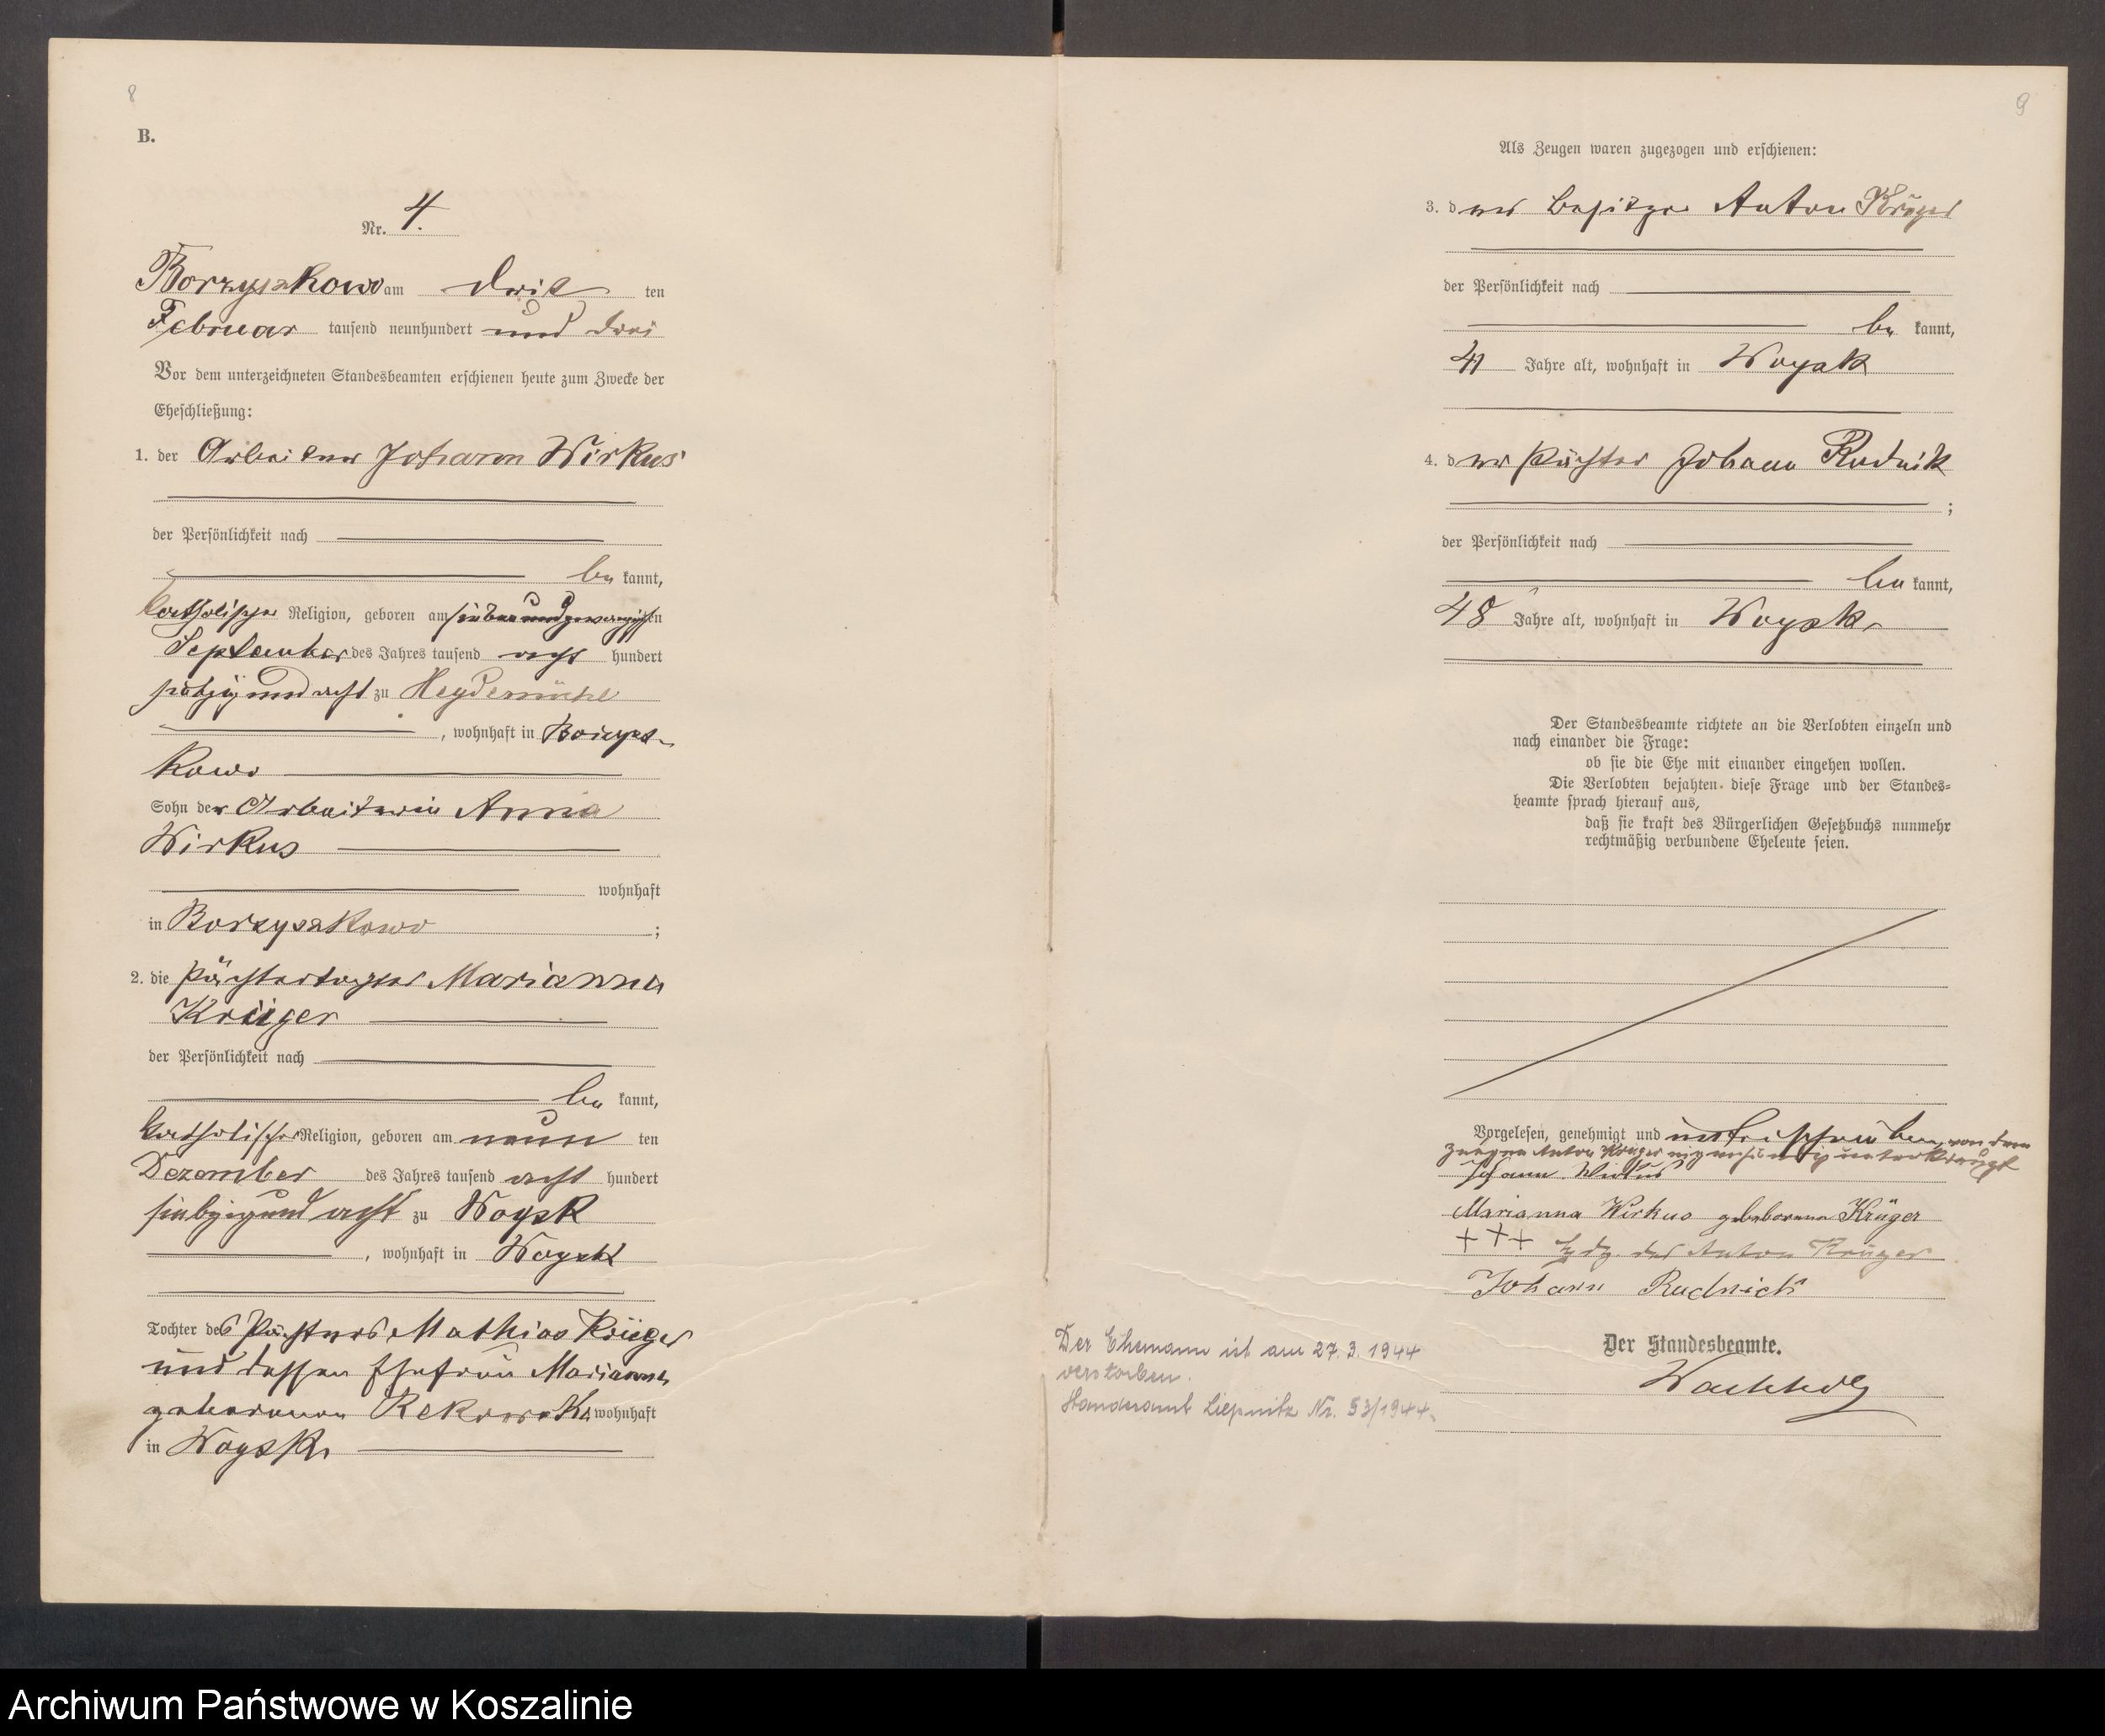 8
B.
Nr. 4.
Borzyszkowo am dritten
Februar tausend neunhundert und drei
Vor dem unterzeichneten Standesbeamten erschienen heute zum Zwecke der
Eheschließung:
1. der Arbeiter Johann Wirkus
der Persönlichkeit nach
bekannt,
katholischer Religion, geboren am siebenundzwanzigsten
September des Jahres tausend acht hundert
siebzig und acht zu Heydemühl
, wohnhaft in Borzysz-
kowo
Sohn der Arbeiterin Anna
Wirkus
wohnhaft
in Borzyszkowo ;
2. die Pächtertochter Marianna
Krüger
der Persönlichkeit nach
bekannt,
katholischer Religion, geboren am neunten
Dezember des Jahres tausend acht hundert
siebzig und acht zu Woysk
, wohnhaft in Woysk
Tochter des Pächters Mathias Krüger
und dessen Ehefrau Marianna
geborenen Rekowski wohnhaft
in Woysk
9
Als Zeugen waren zugezogen und erschienen:
3. der Besitzer Anton Krüger
der Persönlichkeit nach
bekannt,
41 Jahre alt, wohnhaft in Woysk
4. der Pächter Johann Rudnik
;
der Persönlichkeit nach
bekannt,
48 Jahre alt, wohnhaft in Woysk
Der Standesbeamte richtete an die Verlobten einzeln und
nach einander die Frage:
ob sie die Ehe mit einander eingehen wollen.
Die Verlobten bejahten diese Frage und der Standes=
beamte sprach hierauf aus,
daß sie kraft des Bürgerlichen Gesetzbuchs nunmehr
rechtmäßig verbundene Eheleute seien.
Vorgelesen, genehmigt und unterschrieben, von dem
Zeugen Anton Krüger unterkreuzt
Johann Wirkus
Marianna Wirkus geborene Krüger
+++ Hdz. des Anton Krüger
Johann Rudnick
Der Standesbeamte.
Wachholz
Der Ehemann ist am 27.3.1944
verstorben.
Standesamt Liepnitz Nr. 53/1944.
Archiwum Państwowe w Koszalinie